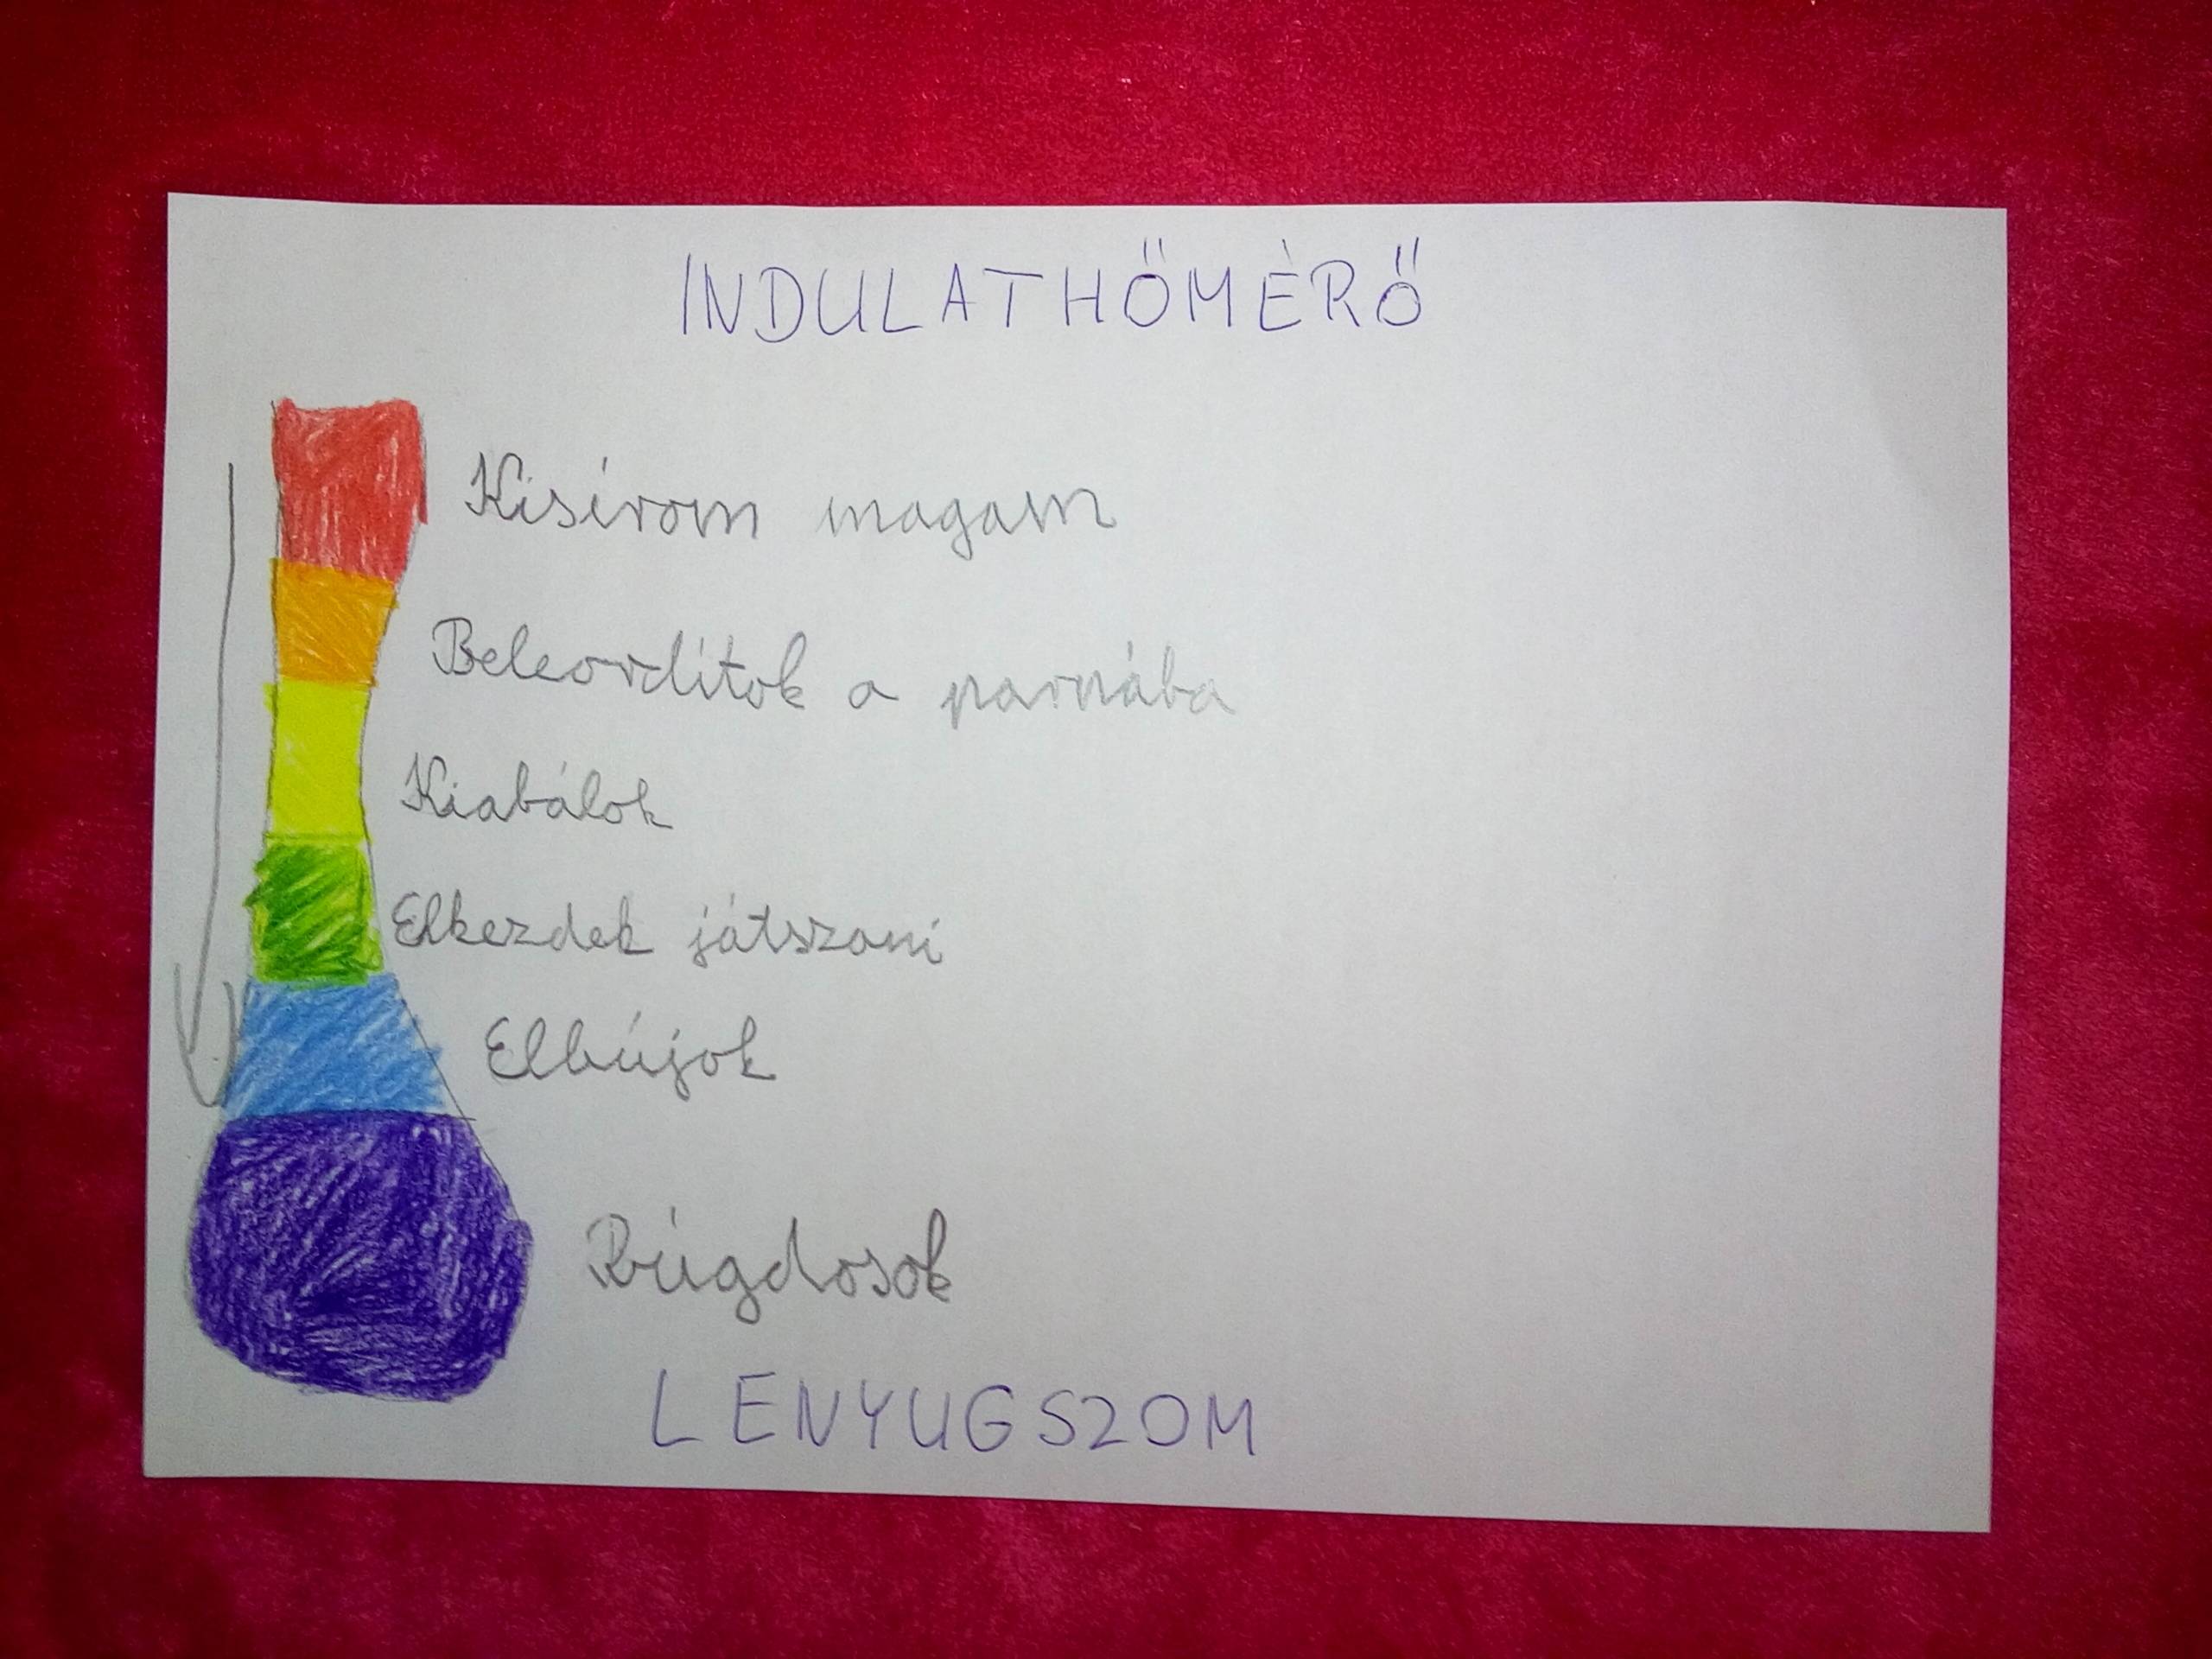 INDULATHŐMÉRŐ
Kisírom magam
Beleordítok a parnába
Kiabálok
Elkezdek játszani
Elbújok
Rúgdosok
LENYUGSZOM